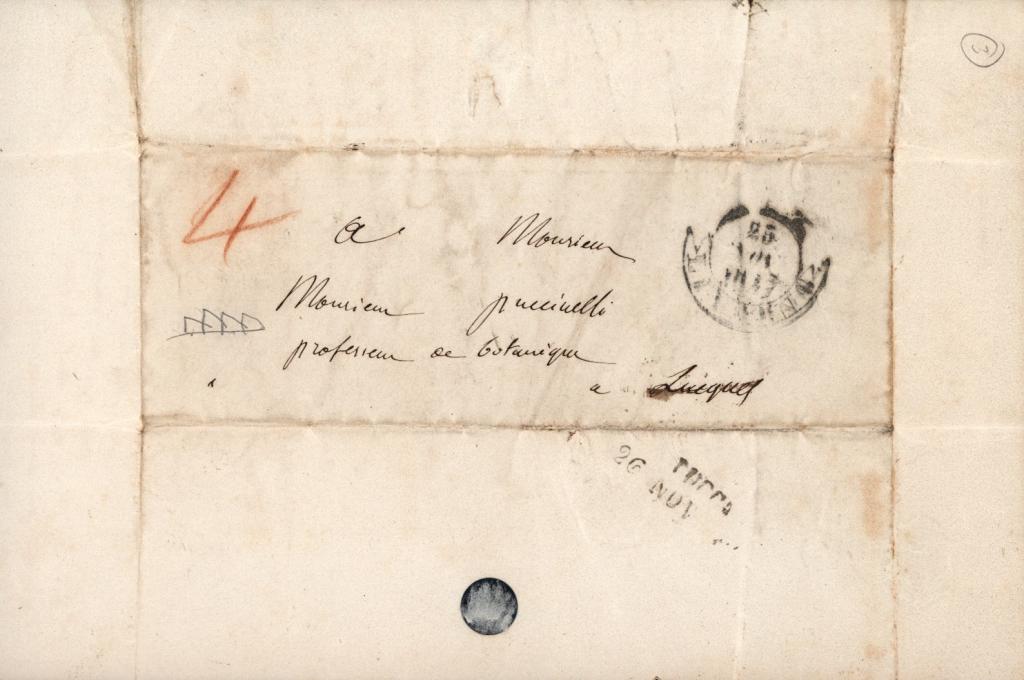 3
4
a Monsieur
Monsieur puccinelli
professeur de botanique
a Lucques
25
NOV
LUCCA
26 NOV